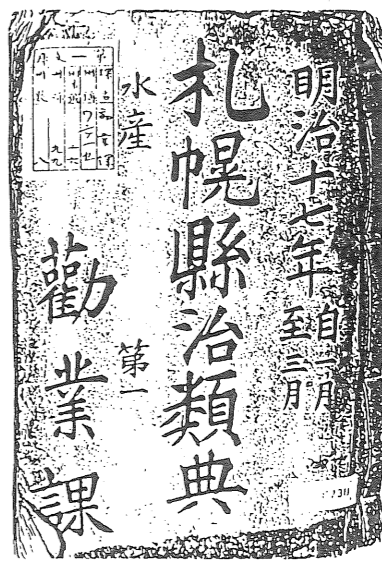 明治十七年 自一月
至三月
札幌縣治類典
水産 第一
勸業課